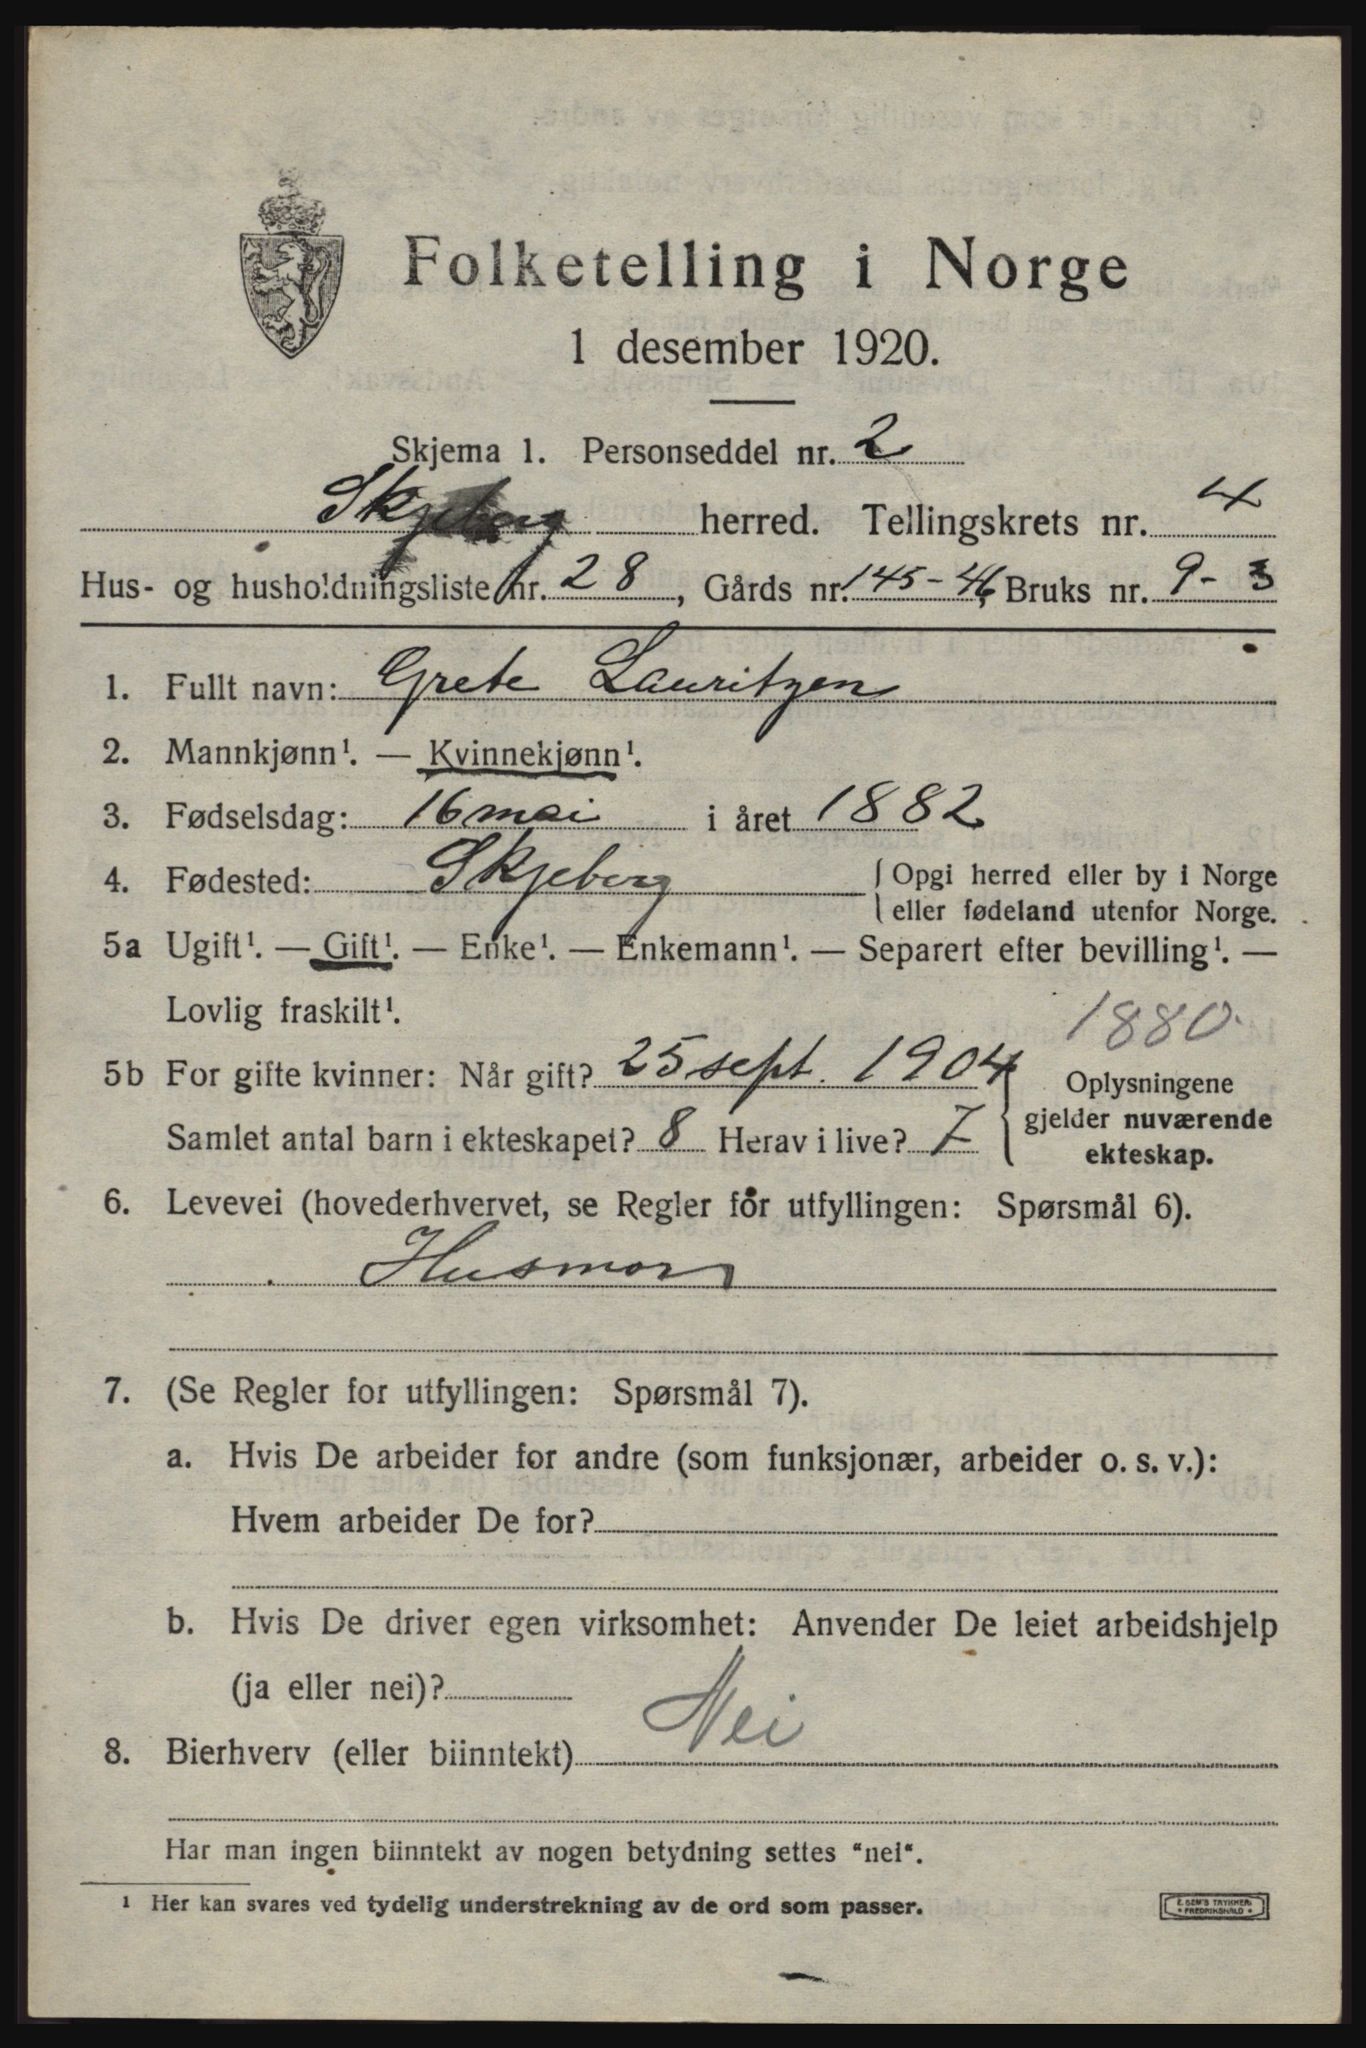 Folketelling i Norge
1 desember 1920.
Skjema 1. Personseddel nr. 2
Skjeberg herred. Tellingskrets nr. 4
Hus- og husholdningsliste nr. 28, Gårds nr. 145-46, Bruks nr. 9-3
1. Fullt navn: Grete Lauritzen
2. Mannkjønn¹. — Kvinnekjønn¹.
3. Fødselsdag: 16 mai i året 1882
4. Fødested: Skjeberg { Opgi herred eller by i Norge
eller fødeland utenfor Norge.
5a Ugift¹. — Gift¹. — Enke¹. — Enkemann¹. — Separert efter bevilling¹. —
Lovlig fraskilt¹.
1880.
5b For gifte kvinner: Når gift? 25 sept. 1904 { Oplysningene
gjelder nuværende
ekteskap.
Samlet antal barn i ekteskapet? 8 Herav i live? 7
6. Levevei (hovederhvervet, se Regler for utfyllingen: Spørsmål 6).
Husmor
7. (Se Regler for utfyllingen: Spørsmål 7).
a. Hvis De arbeider for andre (som funksjonær, arbeider o. s. v.):
Hvem arbeider De for?
b. Hvis De driver egen virksomhet: Anvender De leiet arbeidshjelp
(ja eller nei)?
8. Bierhverv (eller biinntekt) Nei
Har man ingen biinntekt av nogen betydning settes "nei".
¹ Her kan svares ved tydelig understrekning av de ord som passer.
E. SEM'S TRYKKERI
FREDRIKSHALD